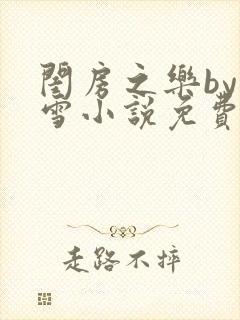 閨房之樂by
雪小說免費
走路不摔